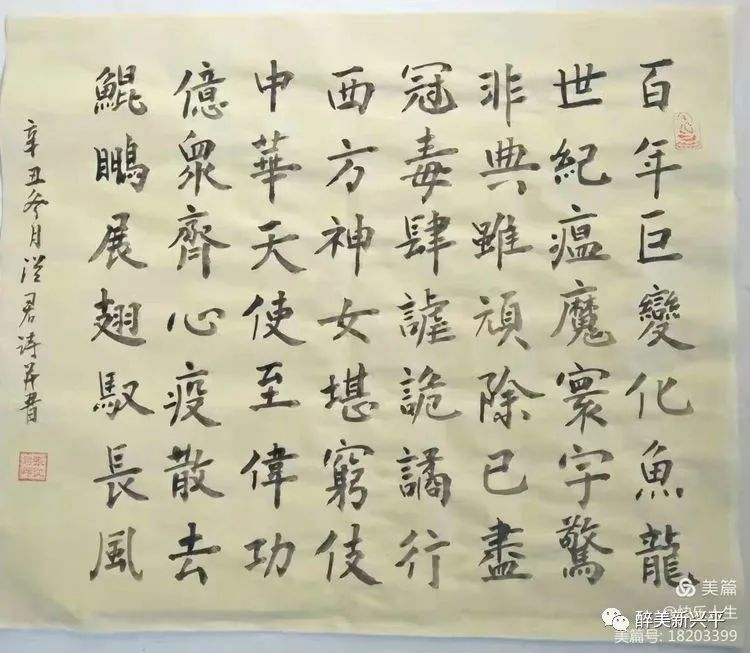 百年巨變化魚龍
世紀瘟魔寰宇驚
非典雖頑除已盡
冠毒肆謔詭譎行
西方神女堪窮伎
中華天使至偉功
億眾齊心疫散去
鯤鵬展翅馭長風
辛丑冬月從君詩并書
美篇
@快乐人生
醉美新兴平
美篇号: 18203399